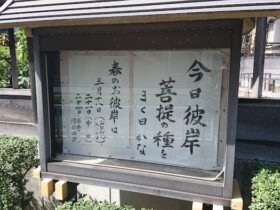 今日彼岸
菩提の種を
まく日かな
春のお彼岸は
三月十八日
二十一日
二十四日